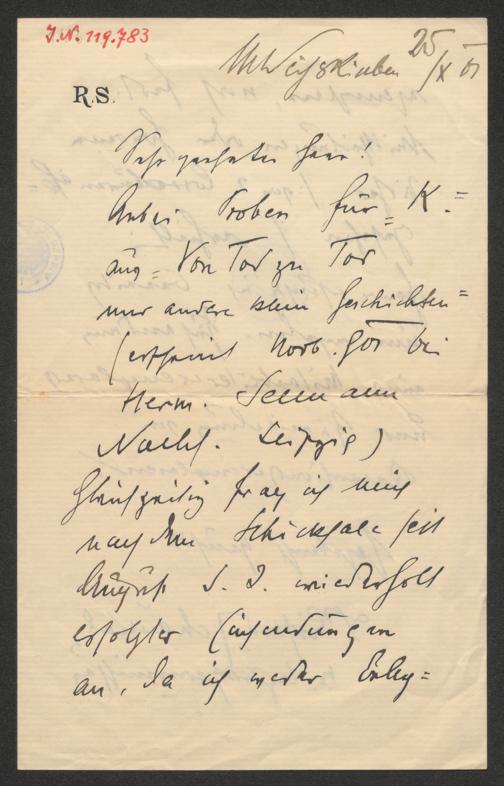 J.N. 119.783
M Weißkirchen 25/X 01
R.S.
Sehr geehrter Herr!
Anbei Proben für K.=
aus = Von Tod zu Tod
und andere kleine Geschichten =
(erscheint Nov. 901 bei
Herm. Seemann
Nachf. Leipzig)
Gleichzeitig frag ich mich
nach dem Schicksale seit
August d. J. wiederholt
erfolgter Einsendungen
an, da ich weder Beleg=